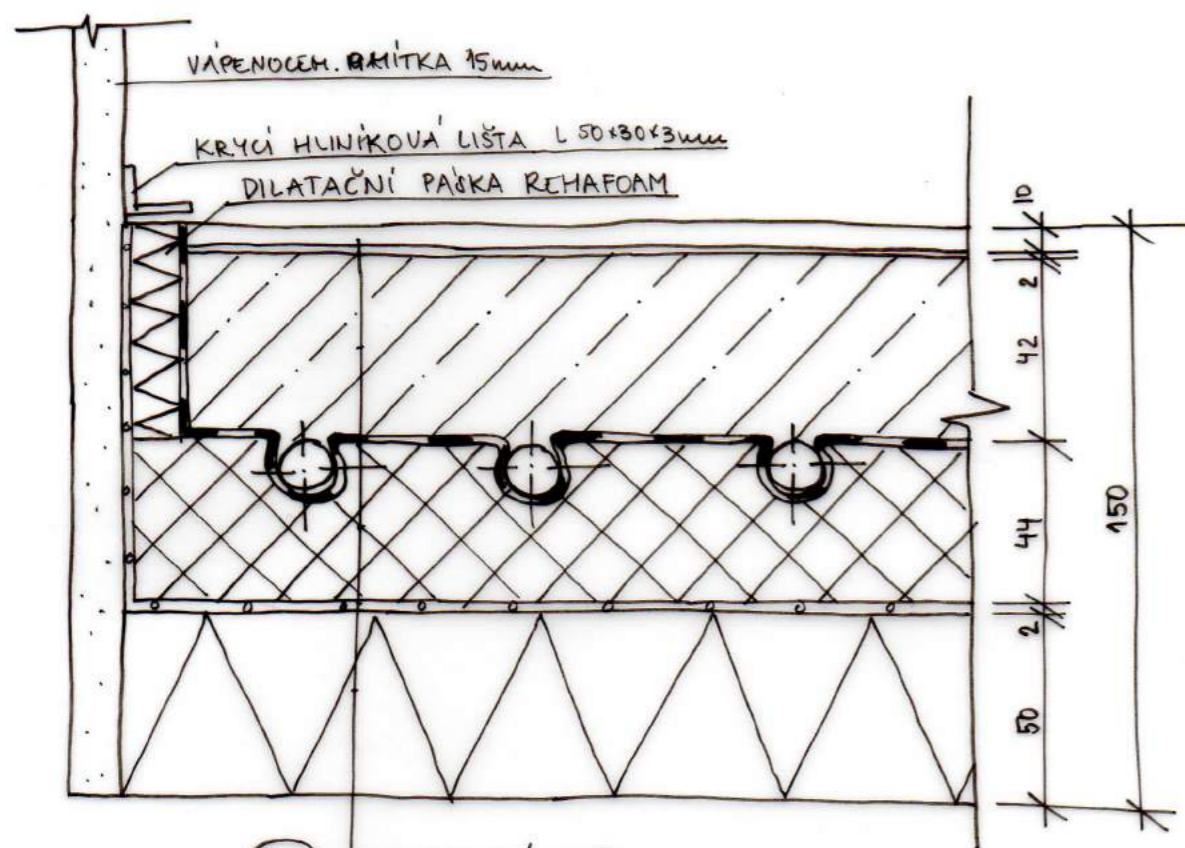 VÁPENOCEM. OMÍTKA 15mm
KRYCÍ HLINÍKOVÁ LIŠTA L 50×30×3mm
DILATAČNÍ PÁSKA REHAFOAM
10
2
42
44
2
50
150